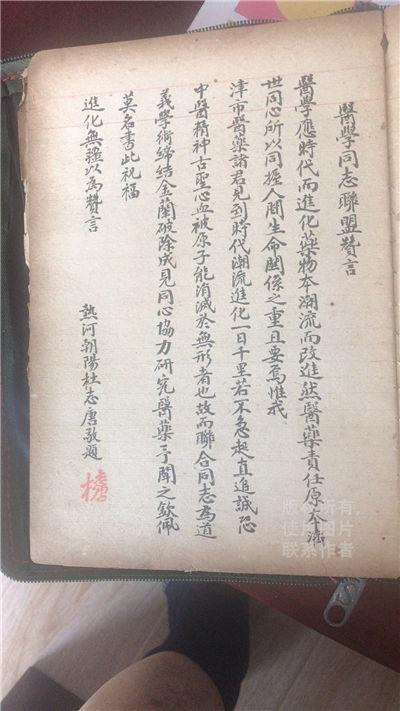 醫學同志聯盟贊言
醫學應時代而進化藥物本潮流而改進然醫藥責任原本濟
世同心所以同握人間生命關係之重且要焉惟我
津市醫藥諸君見到時代潮流進化一日千里若不急起直追誠恐
中醫精神古聖心血被原子能消滅於無形者也故而聯合同志為道
義學術締結金蘭破除成見同心協力研究醫藥予聞之欽佩
莫名書此祝福
進化無疆以為贊言
熱河朝陽杜志唐敬題
版權所有,
使用圖片
联系作者